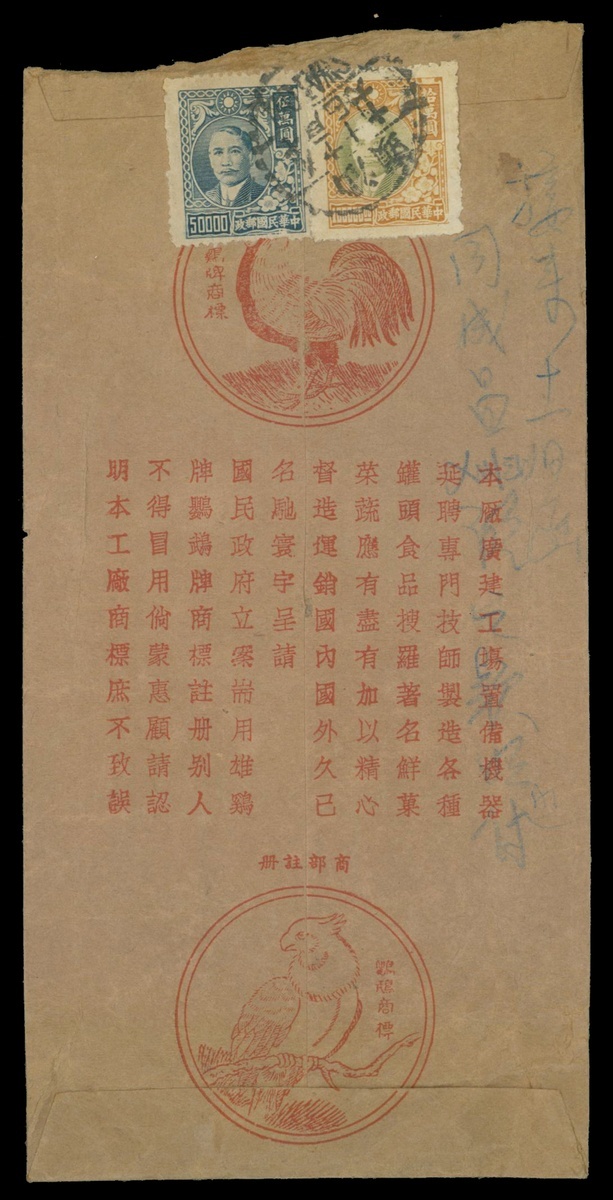 伍萬圓
50000
中華民國郵政
拾萬圓
中華民國郵政
雞牌商標
本廠廣建工塲置備機器
延聘專門技師製造各種
罐頭食品搜羅著名鮮菓
菜蔬應有盡有加以精心
督造運銷國內國外久已
名馳寰宇呈請
國民政府立案耑用雄鷄
牌鸚鵡牌商標註册别人
不得冒用倘蒙惠顧請認
明本工廠商標庶不致誤
商部註册
鸚鵡商標